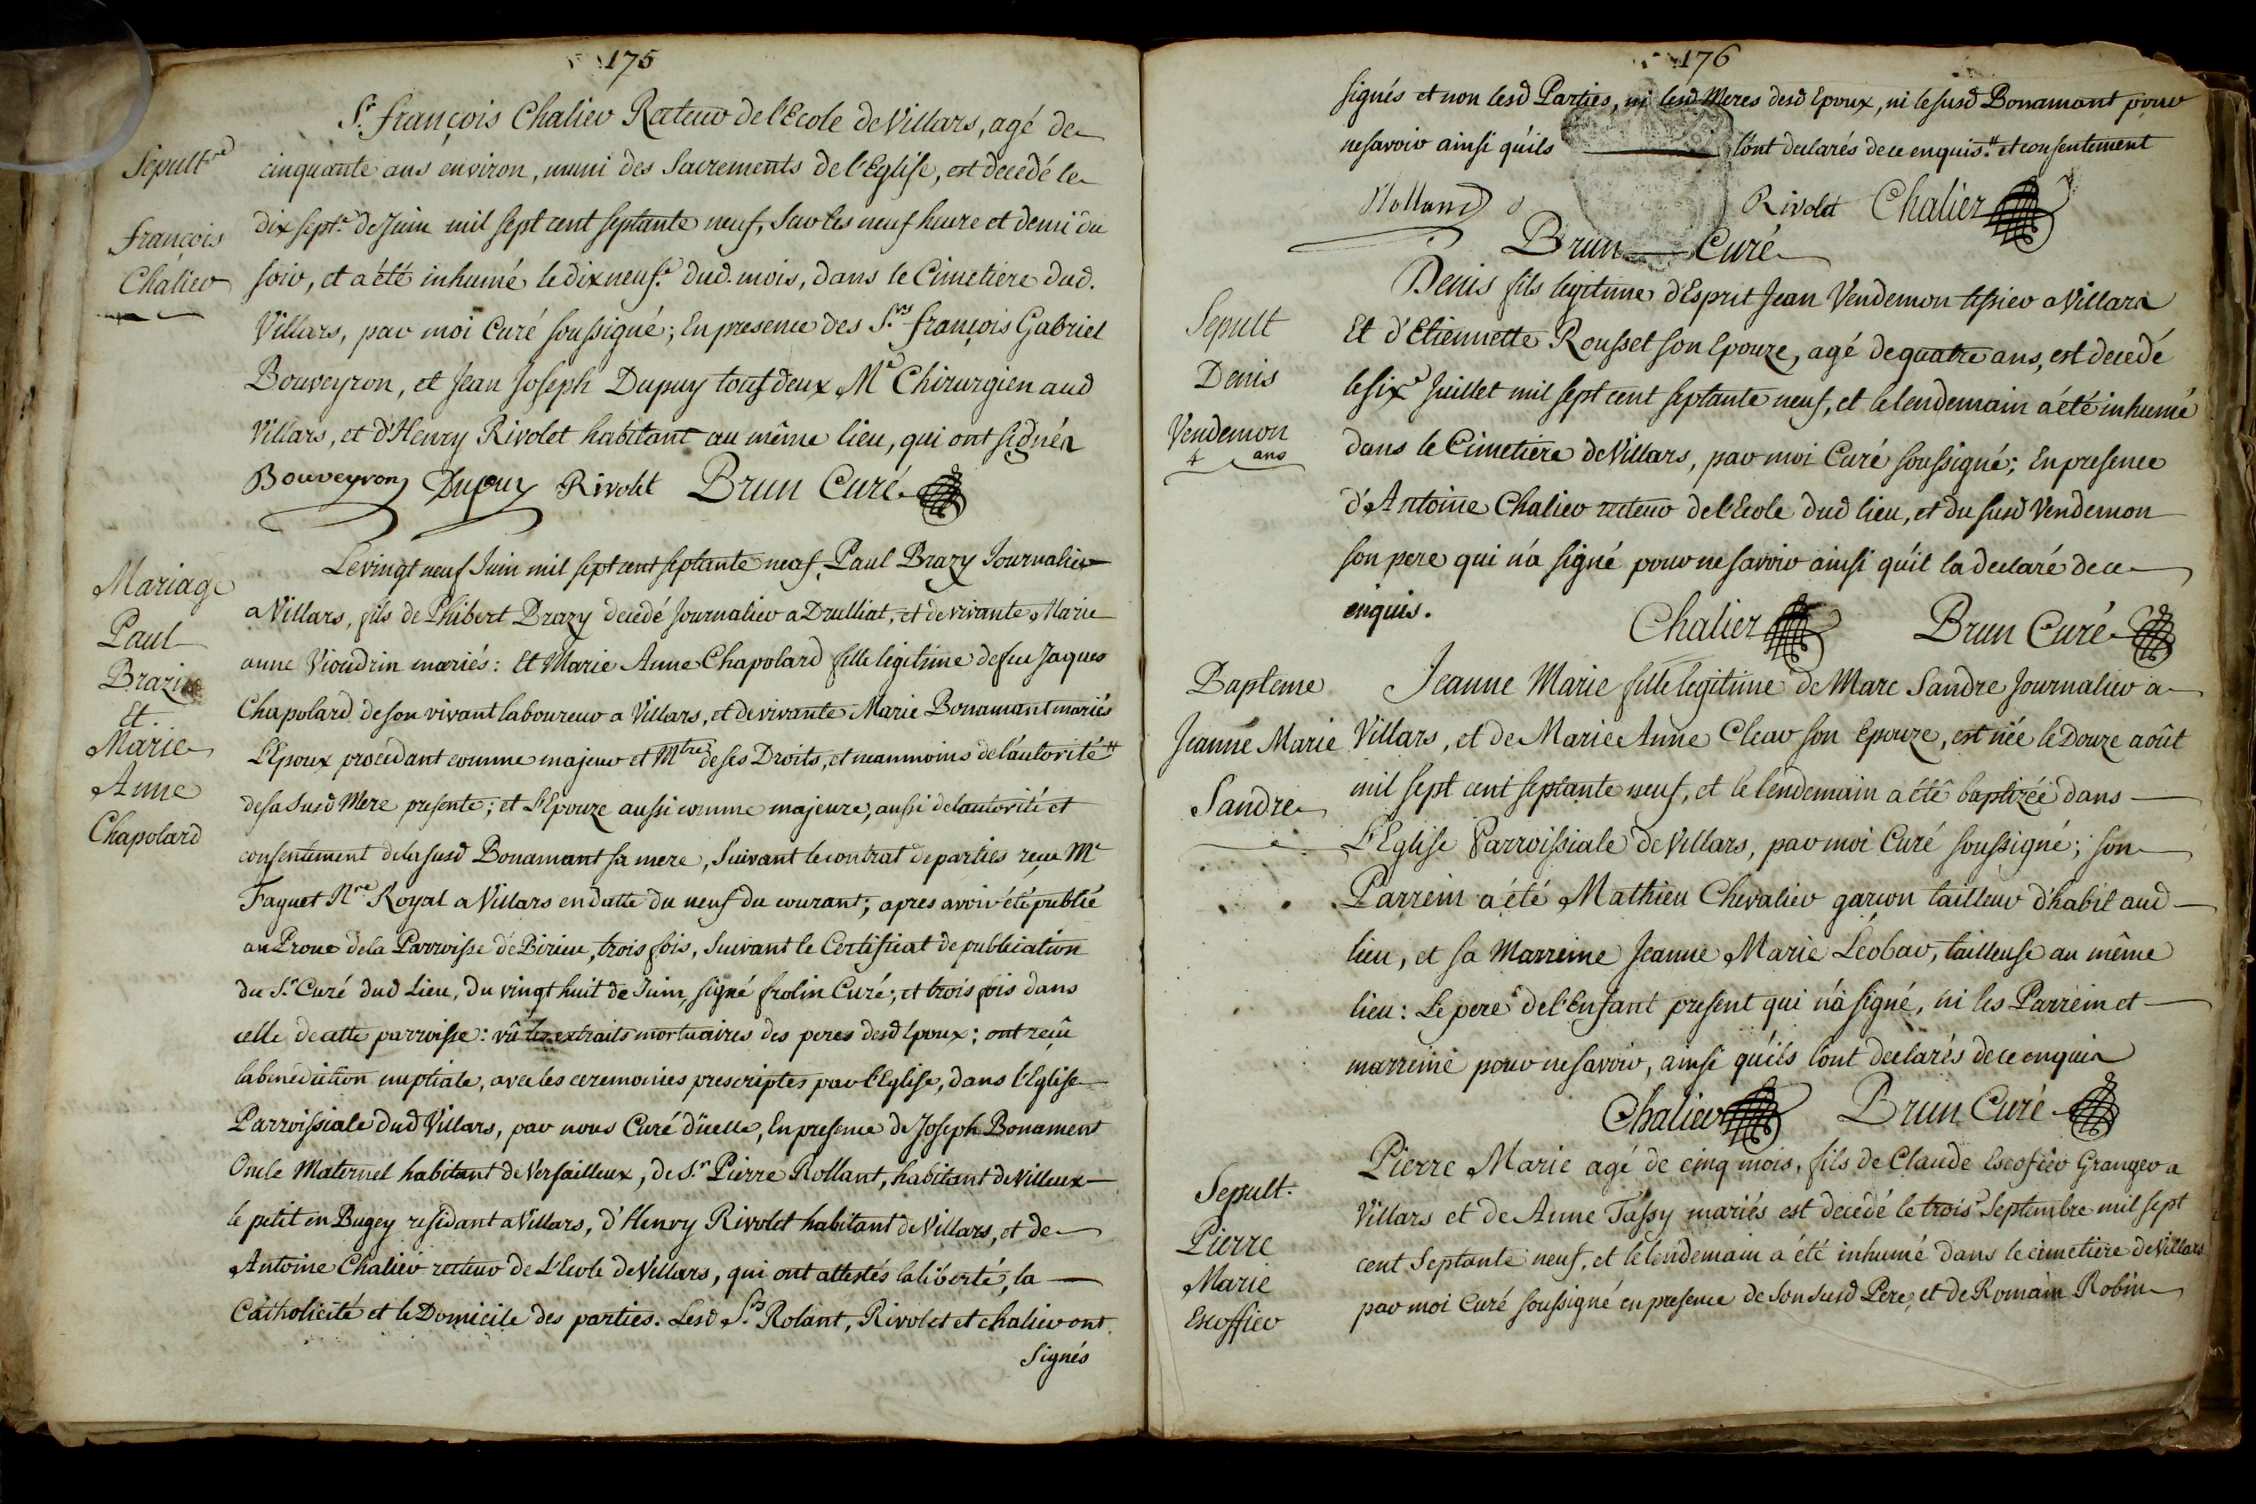 175
Sr. françois Chalier Recteur de l'Ecole de Villars, agé de
Sepultre
cinquante ans environ, muni des Sacrements de l'Eglise, est decedé le
françois
Chalier
dix sept.e de Juin mil sept cent septante neuf, Sur les neuf heure et demi du
soir, et a été inhumé le dix neuf.e dud. mois, dans le Cimetiere dud.
Villars, par moi Curé soussigné; En presence des S.rs françois Gabriel
Bouveyron, et Jean Joseph Dupuy tous deux Me Chirurgien aud
Villars, et d'Henry Rivolet habitant au même lieu, qui ont signés
Bouveyron Dupuy Rivolet Brun Curé
Mariage
Paul
Brazi
Et
Marie
Anne
Chapolard
Le vingt neuf Juin mil sept cent septante neuf, Paul Brazy Journalier
a Villars, fils de Phibert Brazy decedé Journalier a Drulliat, et de vivante Marie
anne Vioudrin mariés: Et Marie Anne Chapolard fille legitime de feu Jaques
Chapolard de son vivant laboureur a Villars, et de vivante Marie Bonamant mariés
L'Epoux procedant comme majeur et Mtre de ses Droits, et neanmoins de l'autorité #
de sa susd Mere presente; et L'Epouze aussi comme majeure, aussi de l'autorité et
consentement de la susd Bonamant sa mere, Suivant le contrat de parties reçu Me
Faguet Nre Royal a Villars en datte du neuf du courant; apres avoir été publié
au Prone de la Parroisse de Birieu, trois fois, Suivant le Certificat de publication
du Sr Curé dud Lieu, du vingt huit de Juin, signé frolin Curé; et trois fois dans
celle de cette parroisse: vû les extraits mortuaires des peres desd Epoux; ont reçû
la benediction nuptiale, avec les ceremonies prescriptes par l'Eglise, dans l'Eglise
Parroissiale dud Villars, par nous Curé d'icelle, En presence de Joseph Bonament
Oncle Maternel habitant de Versailleux, de Sr Pierre Rollant, habitant de Villeux
le petit en Bugey residant a Villars, d'Henry Rivolet habitant de Villars, et de
Antoine Chalier recteur de L'Ecole de Villars, qui ont attestés la liberté, la
Catholicité et le Domicile des parties. Lesd Srs Rolant, Rivolet et chalier ont
signés
176
signés et non lesd Parties, ni lesd Meres desd Epoux, ni le susd Bonamant pour
ne savoir ainsi qu'ils l'ont declarés de ce enquis. # et consentement
Rolland Rivolet Chalier
Brun Curé
Sepult
Denis
Vendemon
4 ans
Denis fils legitime d'Esprit Jean Vendemon tissier a Villars
Et d'Etiennette Rousset son Epouze, agé de quatre ans, est decedé
le sixe Juillet mil sept cent septante neuf, et le lendemain a été inhumé
dans le Cimetiere de Villars, par moi Curé soussigné; En presence
d'Antoine Chalier recteur de l'Ecole dud lieu, et du susd Vendemon
son pere qui n'a signé pour ne savoir ainsi qu'il la declaré de ce
enquis.
Chalier Brun Curé
Bapteme
Jeanne Marie
Sandre
Jeanne Marie fille legitime de Marc Sandre Journalier a
Villars, et de Marie Anne Clear son Epouze, est née le Douze août
mil sept cent septante neuf, et le lendemain a été baptizée dans
L'Eglise Parroissiale de Villars, par moi Curé soussigné; son
Parrein a été Mathieu Chevalier garçon tailleur d'habit aud
lieu, et sa Marreine Jeanne Marie Leobar, tailleuse au même
lieu: Le pere de l'Enfant present qui n'a signé, ni les Parrein et
marreine pour ne savoir, ainsi qu'ils l'ont declarés de ce enquis
Chalier Brun Curé
Sepult.
Pierre
Marie
Escoffier
Pierre Marie agé de cinq mois, fils de Claude Escofier Granger a
Villars et de Anne Tassy mariés est decedé le trois.e Septembre mil sept
cent Septante neuf, et le lendemain a été inhumé dans le cimetiere de Villars
par moi Curé soussigné en presence de son susd Pere, et de Romain Robin